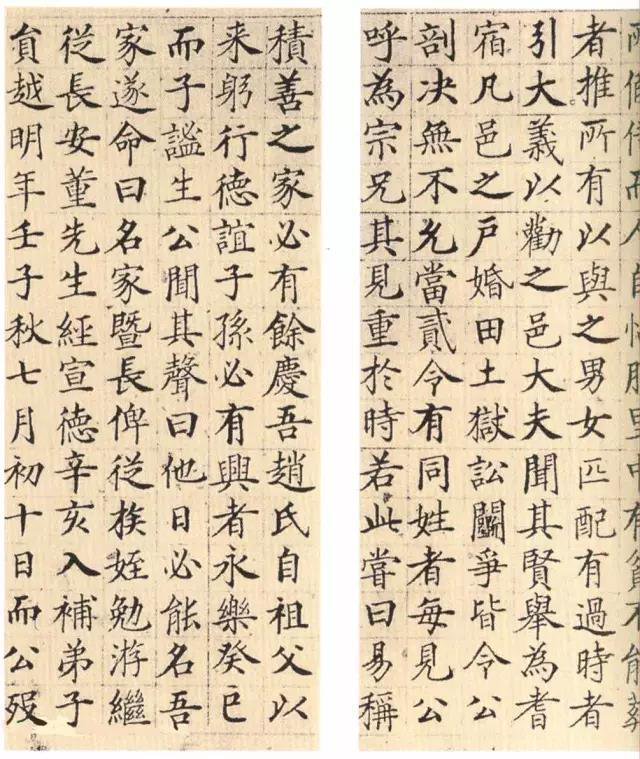 而人自服里中有貧不能葬
者推所有以與之男女匹配有過時者
引大義以勸之邑大夫聞其賢舉為耆
宿凡邑之戶婚田土獄訟鬭爭皆令公
剖决無不允當貳令有同姓者每見公
呼為宗兄其見重於時若此嘗曰易稱
積善之家必有餘慶吾趙氏自祖父以
来躬行德誼子孫必有興者永樂癸巳
而子謐生公聞其聲曰他日必能名吾
家遂命曰名家暨長俾從族姪勉游繼
從長安董先生經宣德辛亥入補弟子
員越明年壬子秋七月初十日而公歿